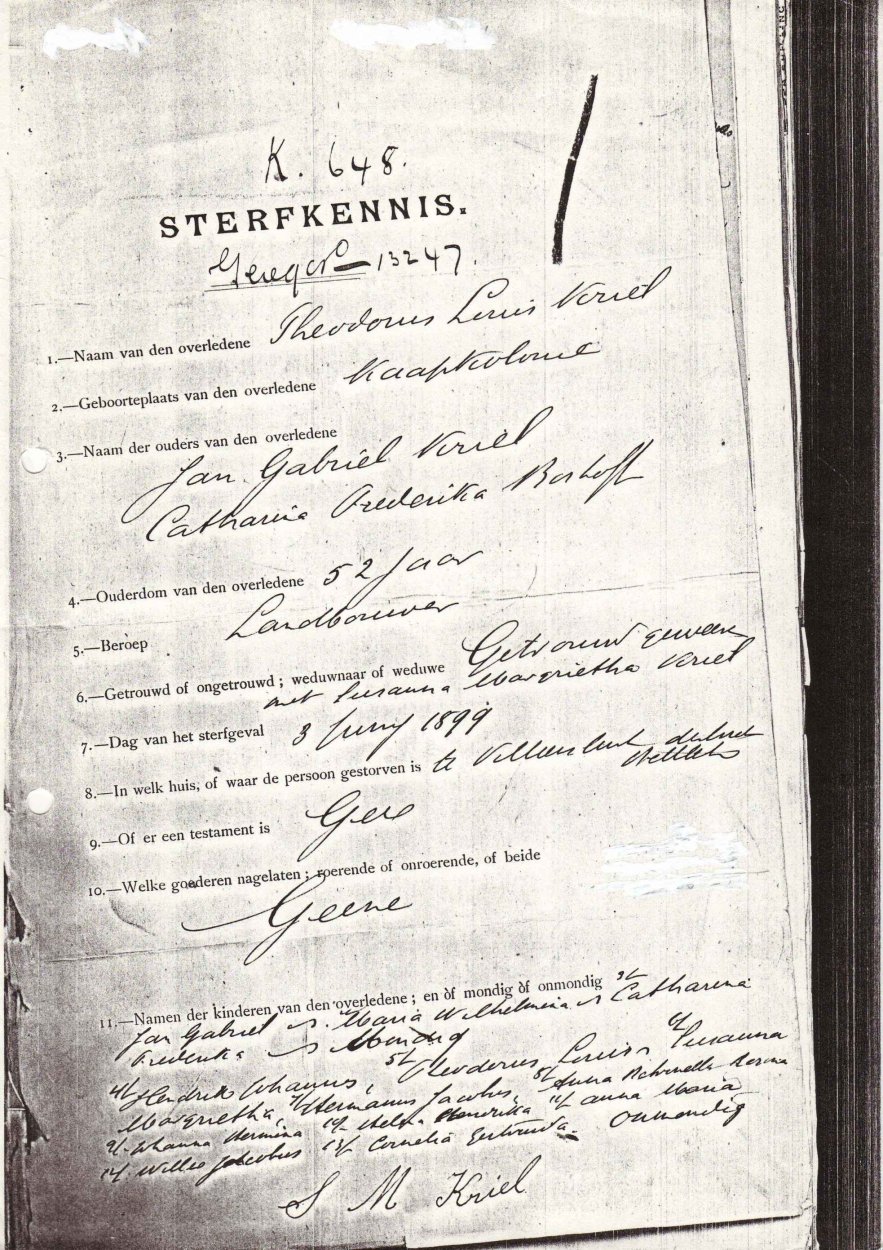 K. 648.
STERFKENNIS.
13247.
1.—Naam van den overledene Theodorus Louis Kriel
2.—Geboorteplaats van den overledene Kaapkolonie
3.—Naam der ouders van den overledene
Jan Gabriël Kriel
Catharina Frederika Boshoff
4.—Ouderdom van den overledene 52 Jaar
5.—Beroep Landbouwer
6.—Getrouwd of ongetrouwd ; weduwnaar of weduwe Getrouwd geweest
met Susanna Margrietha Kriel
7.—Dag van het sterfgeval 3 Juny 1899
8.—In welk huis, of waar de persoon gestorven is te
9.—Of er een testament is Geen
10.—Welke goederen nagelaten ; roerende of onroerende, of beide
Geene
11.—Namen der kinderen van den overledene ; en òf mondig òf onmondig 3/ Catharina
Jan Gabriel Maria Wilhelmina
Frederika Mondig
4/ Hendrik Johannis, 5/ Theodorus Louis, 6/ Susanna
Margrietha, 7/ Hermanus Jacobus, 8/ Anna
9/ Johanna Hermina 10/ Helena Hendrika 11/ Anna Maria
12/ Willie Jacobus 13/ Cornelia Gertruida. Onmondig
S M Kriel